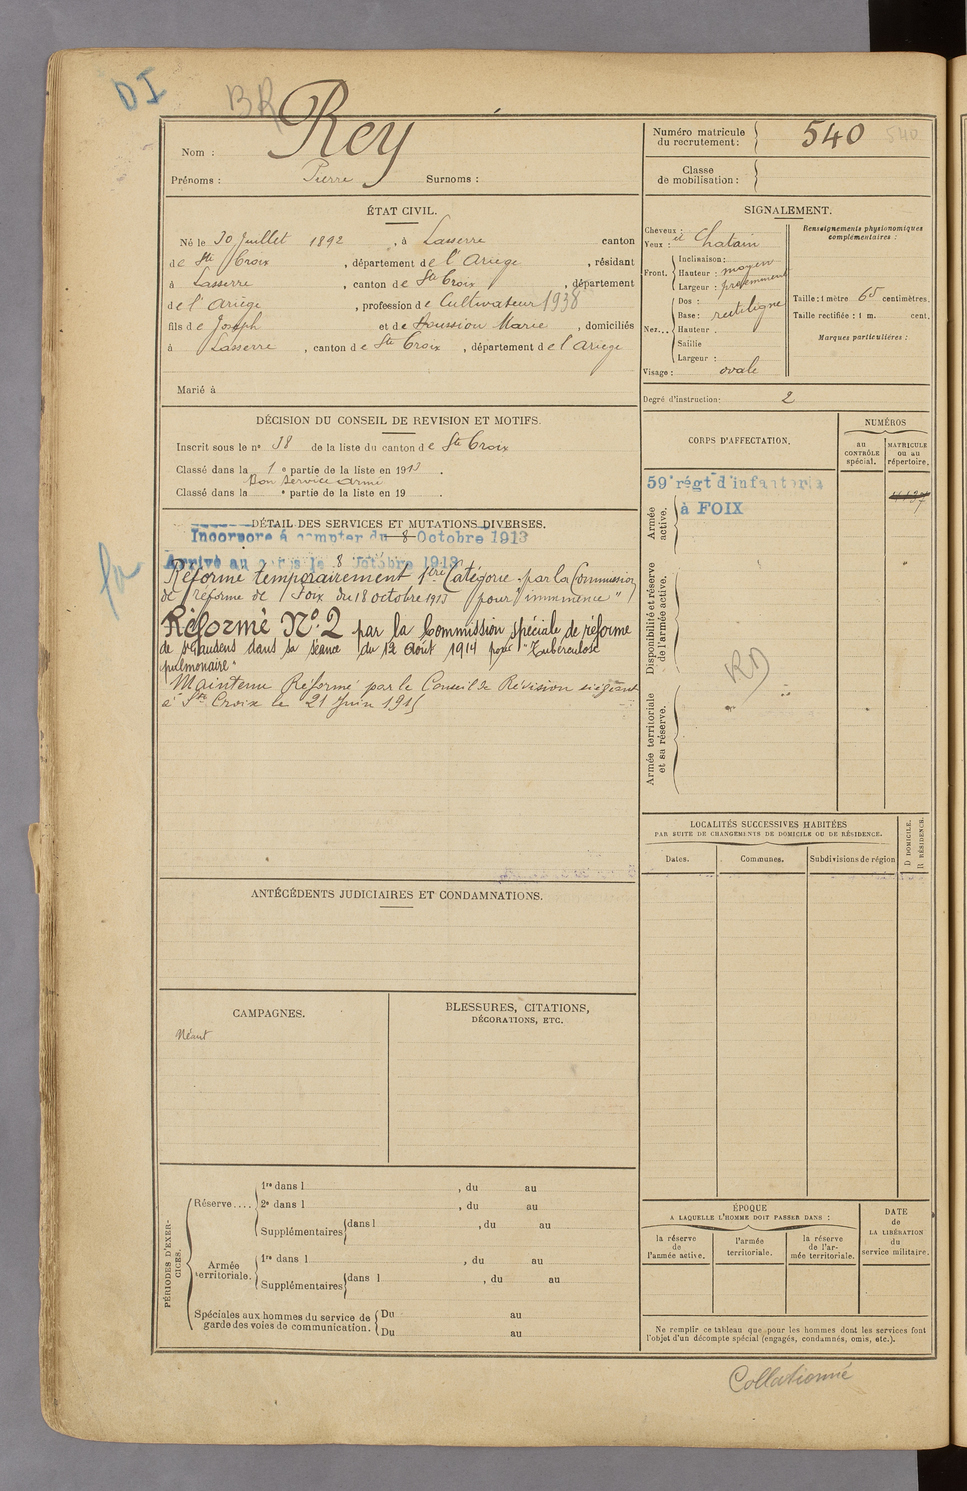 DI
BR
Nom : Rey
Prénoms : Pierre Surnoms :
Numéro matricule du recrutement : 540 540
Classe de mobilisation :
ÉTAT CIVIL.
Né le 30 Juillet 1892, à Lasserre canton
de Ste Croix, département de l'Ariège, résidant
à Lasserre, canton de Ste Croix, département
de l'Ariège, profession de Cultivateur 1938
fils de Joseph et de Soussion Marie, domiciliés
à Lasserre, canton de Ste Croix, département de l'Ariège
Marié à
SIGNALEMENT.
Cheveux :
Yeux : et Chatain
Front. Inclinaison :
Hauteur : moyen
Largeur : proéminent
Nez... Dos :
Base : rectiligne
Hauteur .
Saillie
Largeur :
Visage : ovale
Renseignements physionomiques complémentaires :
Taille : 1 mètre 65 centimètres.
Taille rectifiée : 1 m. cent.
Marques particulières :
Degré d'instruction : 2
DÉCISION DU CONSEIL DE REVISION ET MOTIFS.
Inscrit sous le n° 38 de la liste du canton de Ste Croix
Classé dans la 1e partie de la liste en 1913.
Bon service armé
Classé dans la e partie de la liste en 19 .
DÉTAIL DES SERVICES ET MUTATIONS DIVERSES.
Incorporé à compter du 8 Octobre 1913
Arrivé au corps le 8 Octobre 1913
Réformé temporairement 1ère Catégorie par la Commission
de réforme de Foix du 18 octobre 1913 pour "imminence"
Réformé N° 2 par la Commission spéciale de réforme
de St Gaudens dans sa séance du 12 Août 1914 pour "Tuberculose
pulmonaire"
Maintenu Réformé par le Conseil de Révision siégeant
à Ste Croix le 21 Juin 1915
CORPS D'AFFECTATION.
NUMÉROS
au CONTRÔLE spécial.
MATRICULE ou au répertoire.
Armée active.
59e régt d'infanterie
à FOIX
Disponibilité et réserve de l'armée active.
RD
Armée territoriale et sa réserve.
LOCALITÉS SUCCESSIVES HABITÉES
PAR SUITE DE CHANGEMENTS DE DOMICILE OU DE RÉSIDENCE.
Dates. Communes. Subdivisions de région D DOMICILE. R RÉSIDENCE.
ANTÉCÉDENTS JUDICIAIRES ET CONDAMNATIONS.
CAMPAGNES.
Néant
BLESSURES, CITATIONS,
DÉCORATIONS, ETC.
PÉRIODES D'EXERCICES.
Réserve.... 1re dans l , du au
2e dans l , du au
Supplémentaires dans l , du au
Armée territoriale. 1re dans l , du au
Supplémentaires dans l , du au
Spéciales aux hommes du service de garde des voies de communication. Du au
Du au
ÉPOQUE
A LAQUELLE L'HOMME DOIT PASSER DANS :
la réserve de l'armée active.
l'armée territoriale.
la réserve de l'armée territoriale.
DATE de LA LIBÉRATION du service militaire.
Ne remplir ce tableau que pour les hommes dont les services font
l'objet d'un décompte spécial (engagés, condamnés, omis, etc.).
Collationné